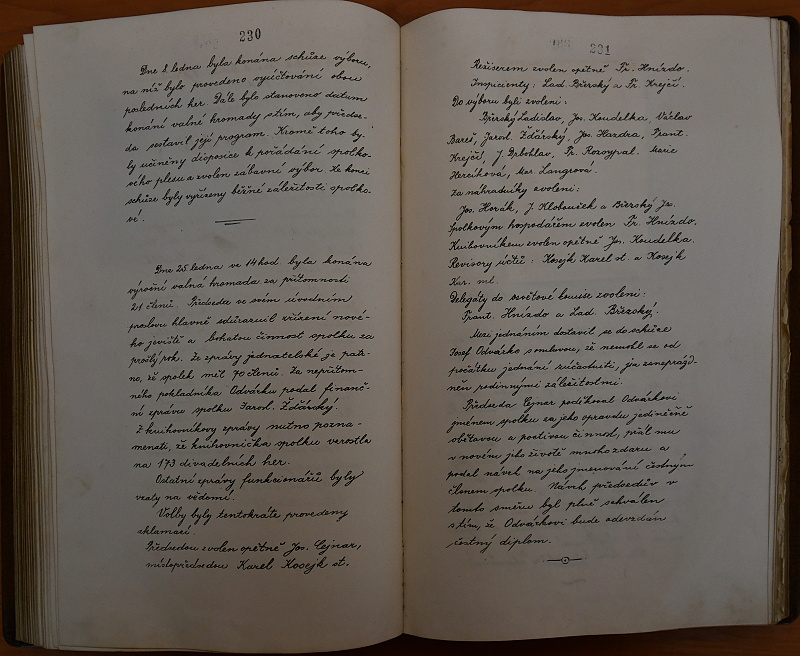 230
Dne 8. ledna byla konána schůze výboru,
na níž bylo provedeno vyúčtování obou
posledních her. Dále bylo stanoveno datum
konání valné hromady s tím, aby předse-
da sestavil její program. Kromě toho by-
ly učiněny disposice k pořádání spolko-
vého plesu a zvolen zábavní výbor. Ke konci
schůze byly vyřízeny běžné záležitosti spolko-
vé.
Dne 25 ledna ve 14 hod. byla konána
výroční valná hromada za přítomnosti
21 členů. Předseda ve svém úvodním
proslovu hlavně zdůraznil zřízení nové-
ho jeviště a bohatou činnost spolku za
prošlý rok. Ze zprávy jednatelské je patr-
no, že spolek měl 70 členů. Za nepřítom-
ného pokladníka Odvárku podal finanč-
ní zprávu spolku Jarosl. Žďárský.
Z knihovníkovy zprávy nutno pozna-
menati, že knihovnička spolku vzrostla
na 173 divadelních her.
Ostatní zprávy funkcionářů byly
vzaty na vědomí.
Volby byly tentokráte provedeny
aklamací.
Předsedou zvolen opětně Jos. Cejnar,
místopředsedou Karel Kosejk st.
231
Režiserem zvolen opětně Fr. Hnízdo.
Inspicienty: Lad. Břerský a Fr. Krejčí.
Do výboru byli zvoleni:
Břerský Ladislav, Jos. Koudelka, Václav
Bareš, Jarosl. Žďárský, Jos. Hardra, Frant.
Krejčí, J. Drbohlav, Fr. Rozsypal. Marie
Hercíková, Mar. Langrová.
Za náhradníky zvoleni:
Jos. Horák, J. Klobouček a Břerský Jar.
Spolkovým hospodářem zvolen Fr. Hnízdo.
Knihovníkem zvolen opětně Jos. Koudelka.
Revisory účtů: Kosejk Karel st. a Kosejk
Kar. ml.
Delegáty do osvětové komise zvoleni:
Frant. Hnízdo a Lad. Břerský.
Mezi jednáním dostavil se do schůze
Josef Odvárko s omluvou, že nemohl se od
počátku jednání zúčastniti, jsa zaneprázd-
něn rodinnými záležitostmi.
Předseda Cejnar poděkoval Odvárkovi
jménem spolku za jeho opravdu jedinečně
obětavou a poctivou činnost, přál mu
v novém jeho životě mnoho zdaru a
podal návrh na jeho jmenování čestným
členem spolku. Návrh předsedův v
tomto směru byl plně schválen
s tím, že Odvárkovi bude odevzdán
čestný diplom.